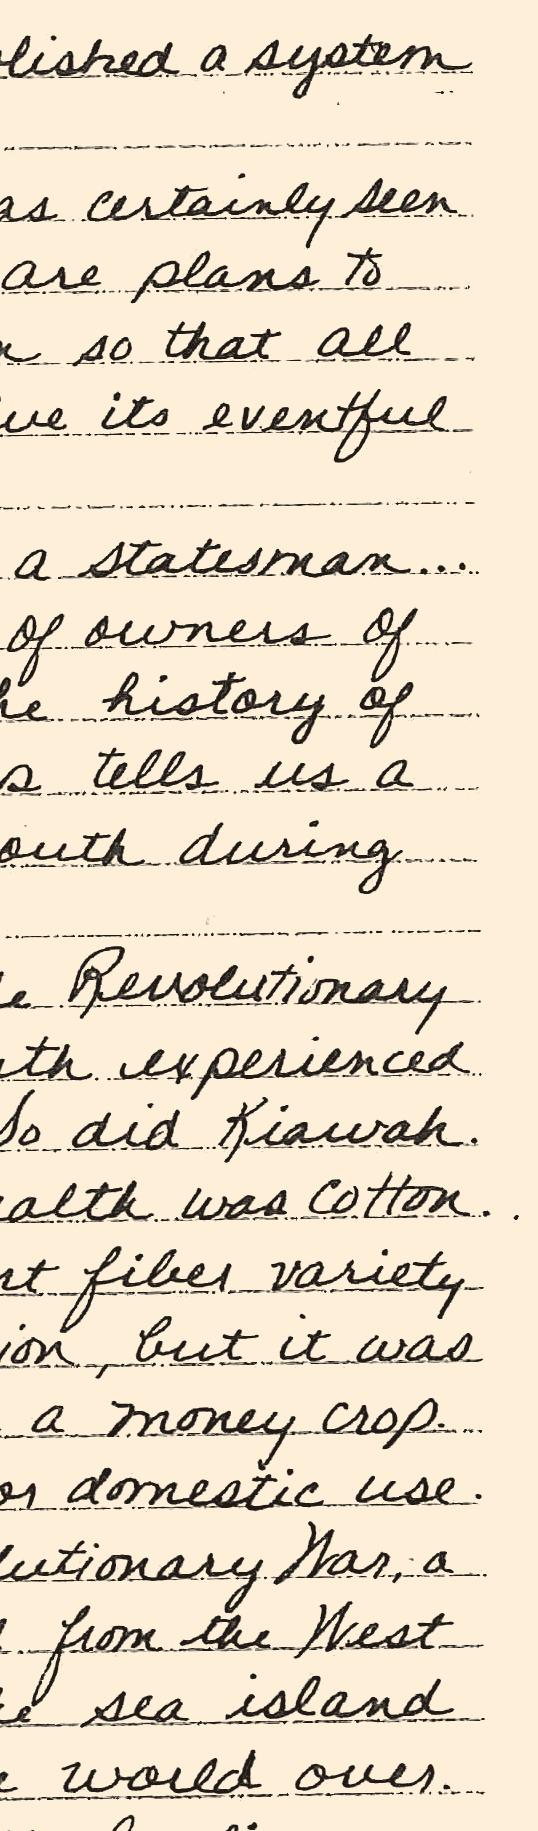 lished a system
as certainly seen
are plans to
so that all
its eventful
a statesman...
of owners of
he history of
s tells us a
outh during
Revolutionary
uth experienced
So did Kiawah.
ealth was cotton.
rt fiber variety
ion, but it was
a money crop.
or domestic use.
lutionary War, a
from the West
sea island
world over.